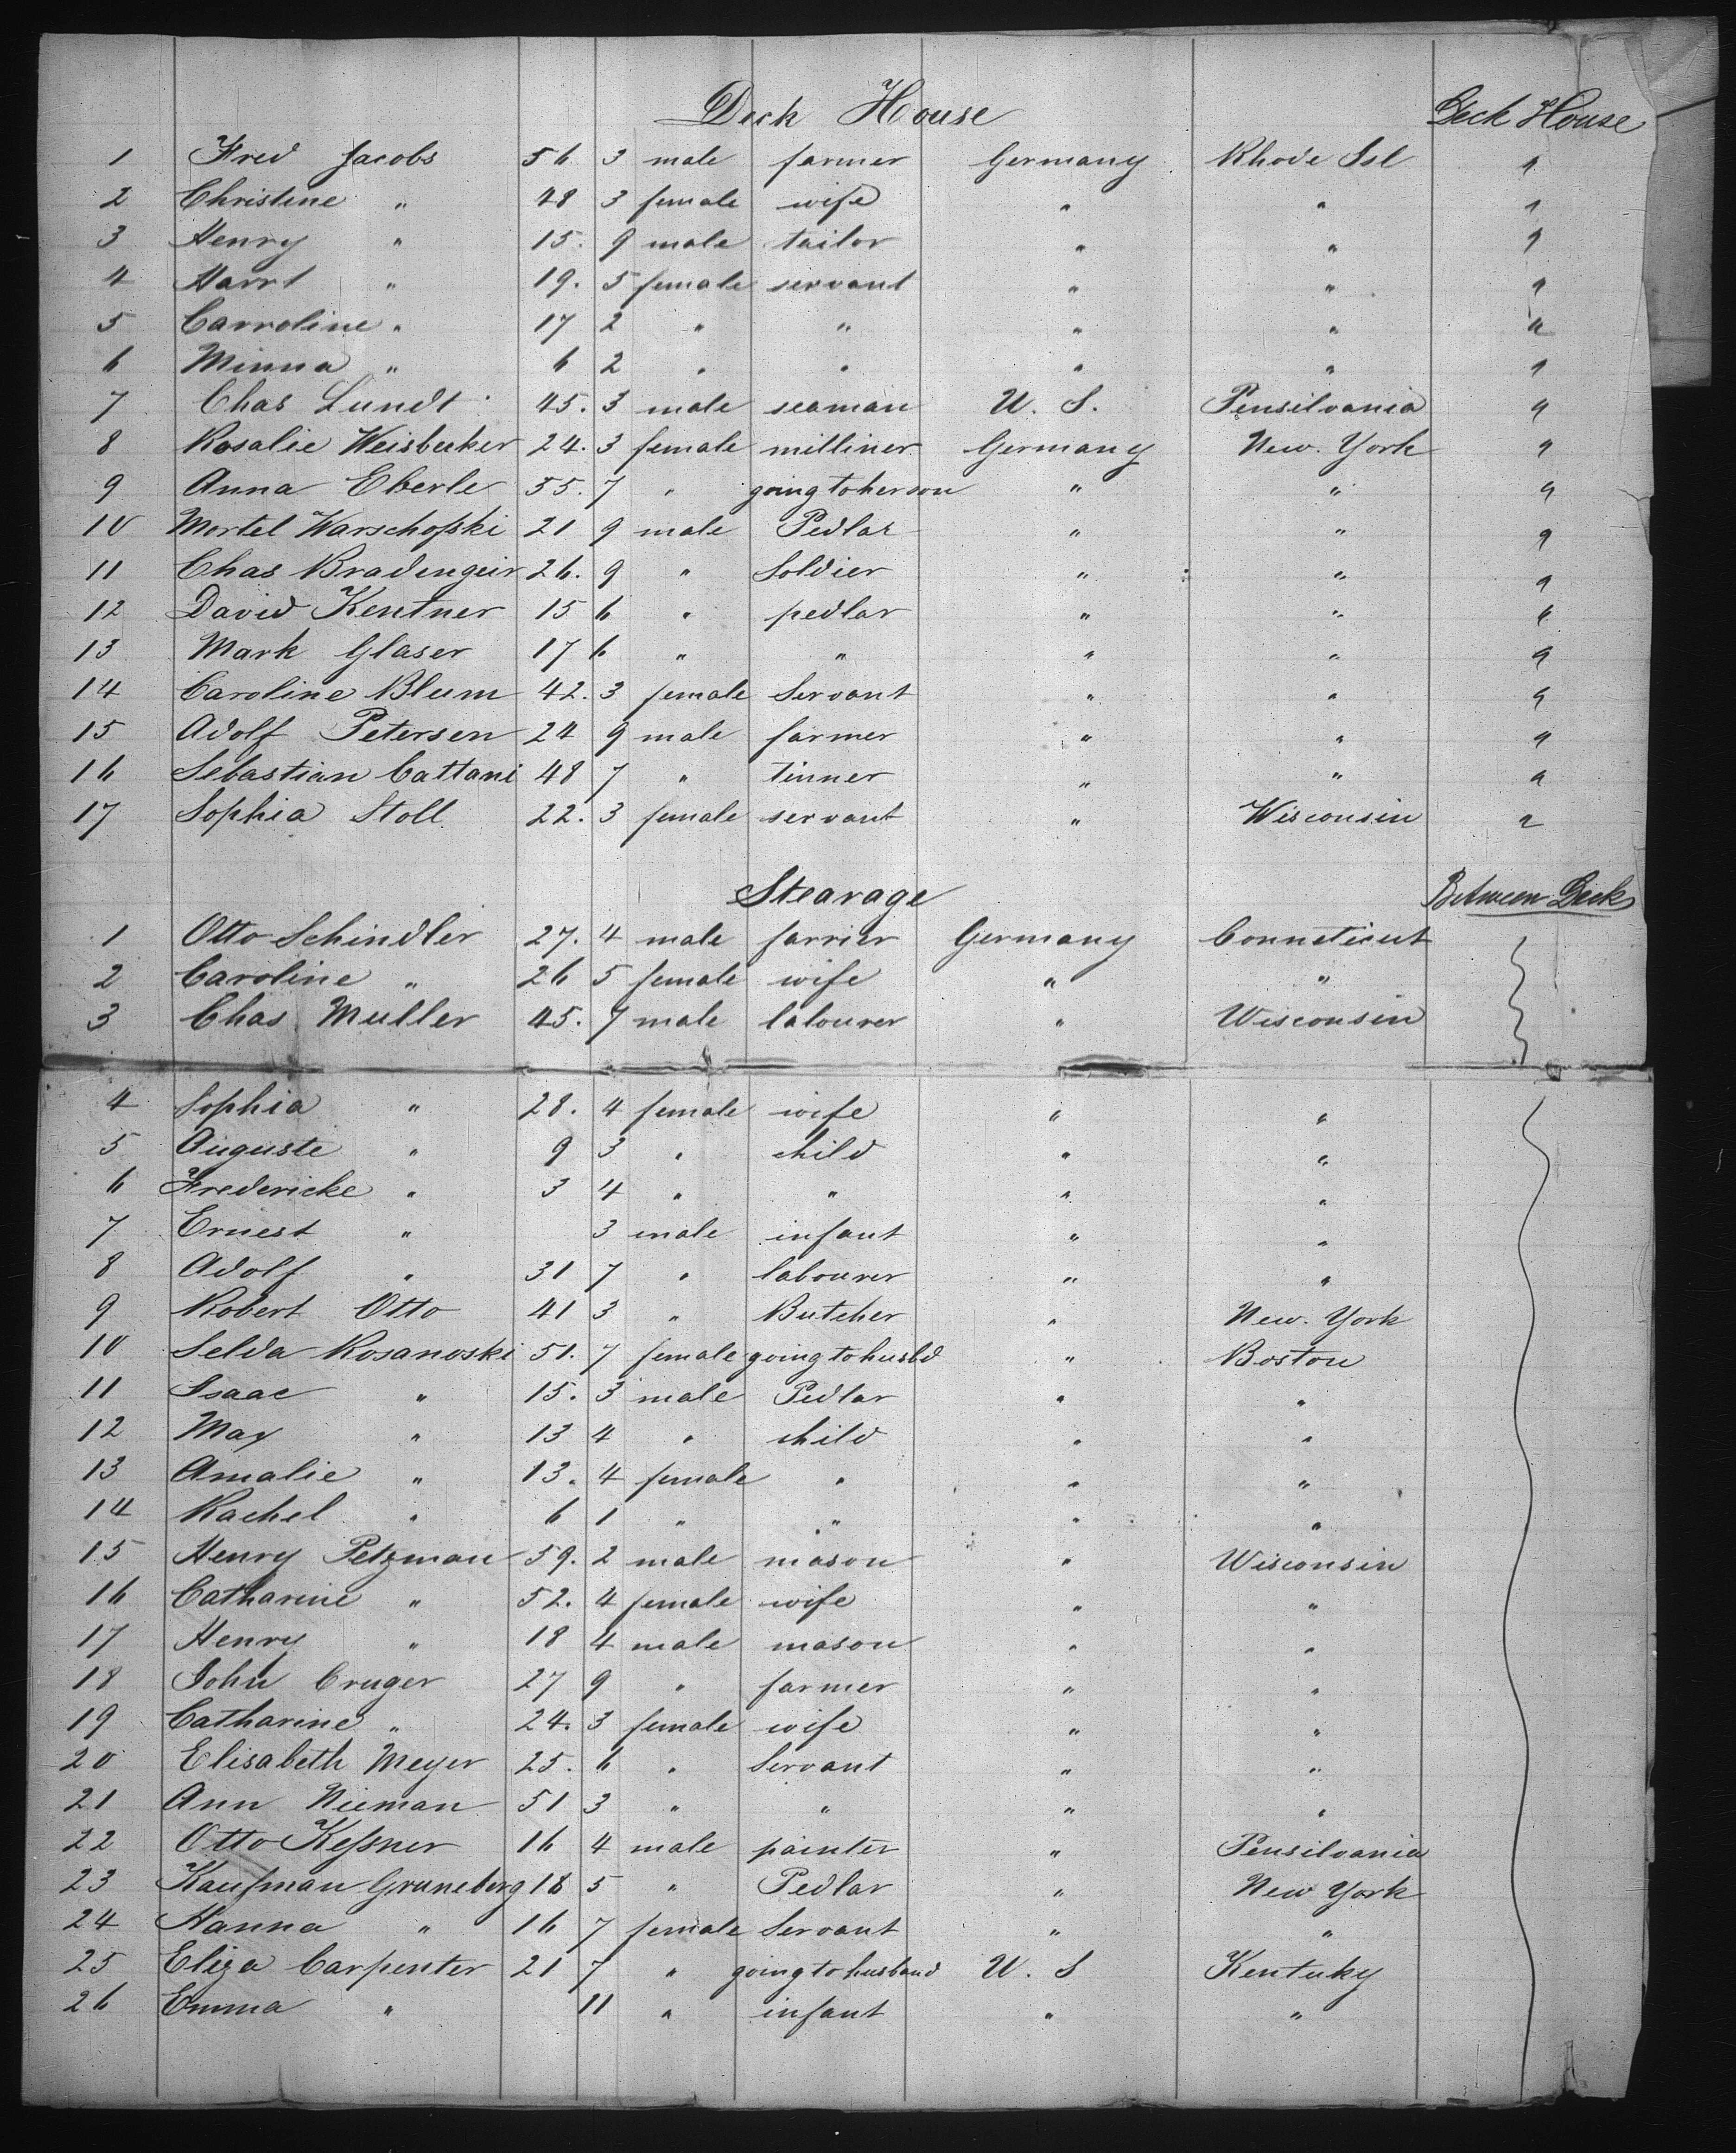 Deck House Deck House
1 Fred Jacobs 56 3 male farmer Germany Rhode Isl "
2 Christine " 48 3 female wife " " "
3 Henry " 15. 9 male tailor " " "
4 Harrt " 19. 5 female servant " " "
5 Carroline " 17 2 " " " " "
6 Minna " 6 2 " " " " "
7 Chas Lundt 45. 3 male seaman U. S. Pensilvania "
8 Rosalie Weisbecker 24. 3 female milliner Germany New. York "
9 Anna Eberle 55. 7 " going to her son " " "
10 Mortel Warschofski 21 9 male Pedlar " " "
11 Chas Bradengeir 26. 9 " Soldier " " "
12 David Kentner 15 6 " pedlar " " "
13 Mark Glaser 17 6 " " " " "
14 Caroline Blum 42. 3 female Servant " " "
15 Adolf Petersen 24 9 male farmer " " "
16 Sebastian Cattani 48 7 " tinner " " "
17 Sophia Stoll 22. 3 female servant " Wisconsin "
Stearage Between Deck
1 Otto Schindler 27. 4 male farrier Germany Conneticut
2 Caroline " 26 5 female wife " "
3 Chas Muller 45. 7 male labourer " Wisconsin
4 Sophia " 28. 4 female wife " "
5 Auguste " 9 3 " child " "
6 Fredericke " 3 4 " " " "
7 Ernest " 3 male infant " "
8 Adolf " 31 7 " labourer " "
9 Robert Otto 41 3 " Butcher " New. York
10 Selda Rosanoski 51. 7 female going to husbd " Boston
11 Isaac " 15. 3 male Pedlar " "
12 Max " 13 4 " child " "
13 Amalie " 13. 4 female " " "
14 Rachel " 6 1 " " " "
15 Henry Petzman 59. 2 male mason " Wisconsin
16 Catharine " 52. 4 female wife " "
17 Henry " 18 4 male mason " "
18 John Cruger 27 9 " farmer " "
19 Catharine " 24. 3 female wife " "
20 Elisabeth Meyer 25. 6 " Servant " "
21 Ann Nieman 51 3 " " " "
22 Otto Kessner 16 4 male painter " Pensilvania
23 Kaufman Gruneberg 18 5 " Pedlar " New York
24 Hanna " 16 7 female Servant " "
25 Eliza Carpenter 21 7 " going to husband U. S Kentuky
26 Emma " 11 " infant " "